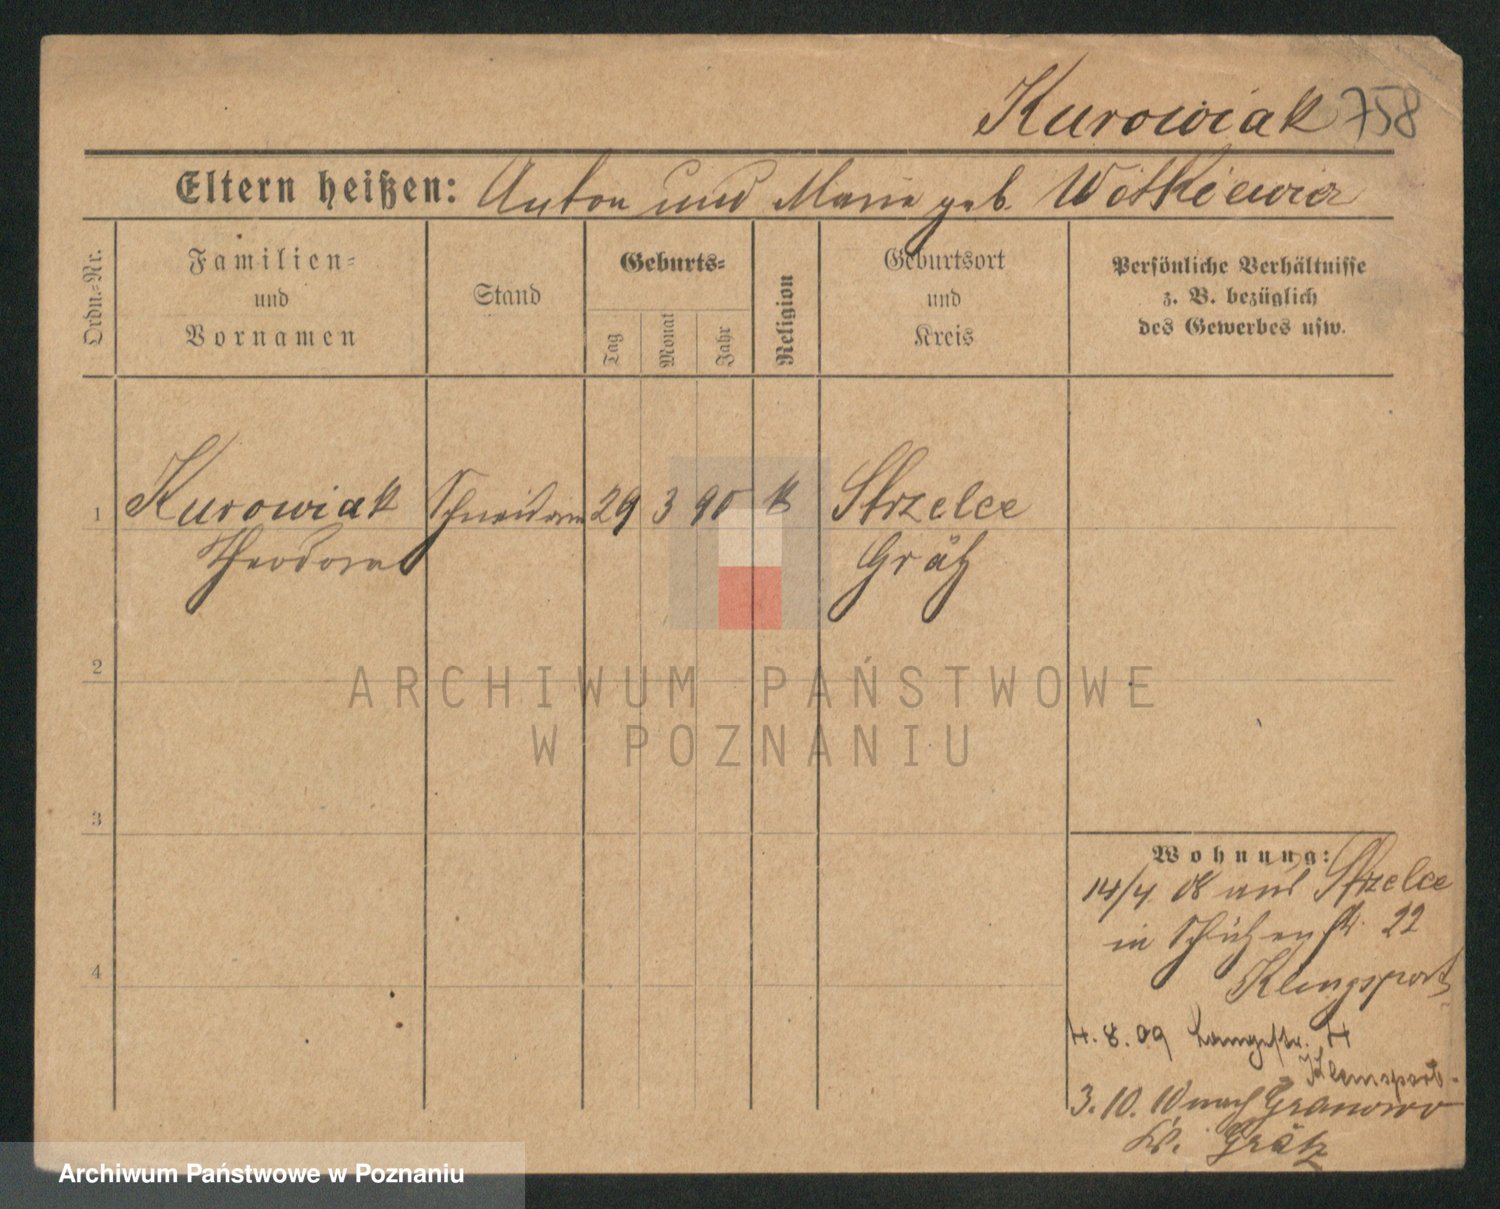 Kurowiak 758
Eltern heißen: Anton und Maria geb. Witkiewicz
Ordn.-Nr.
Familien- und Vornamen
Stand
Geburts-
Tag
Monat
Jahr
Religion
Geburtsort und Kreis
Persönliche Verhältnisse
z. B. bezüglich
des Gewerbes usw.
1 Kurowiak Schneiderin 29 3 90 k Strzelce
Theodora Grätz
2
ARCHIWUM PAŃSTWOWE
W POZNANIU
3
Wohnung:
14/4 08 aus Strzelce
in Schützenstr. 22
4
Klingsport
4.8.09 Langestr. 4
3.10.10 nach Granowo
Kr. Grätz
Archiwum Państwowe w Poznaniu